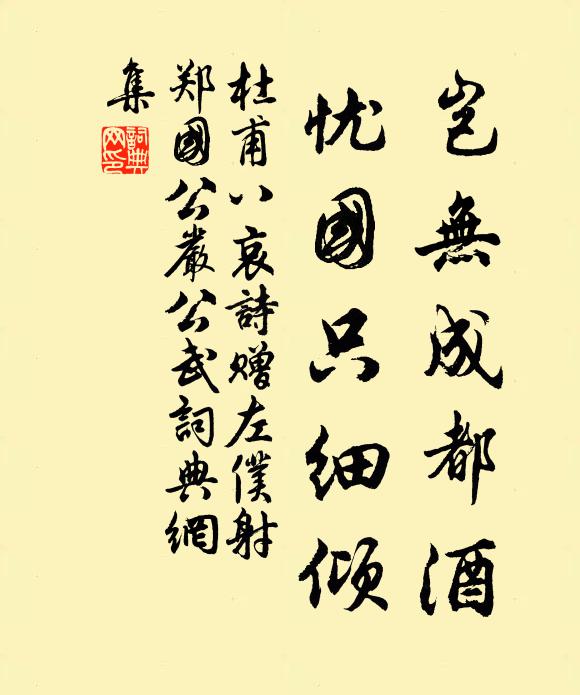 豈無成都酒
忧國只细倾
杜甫八哀詩赠左僕射
郑國公嚴公武詞典網
集
詞典
网印